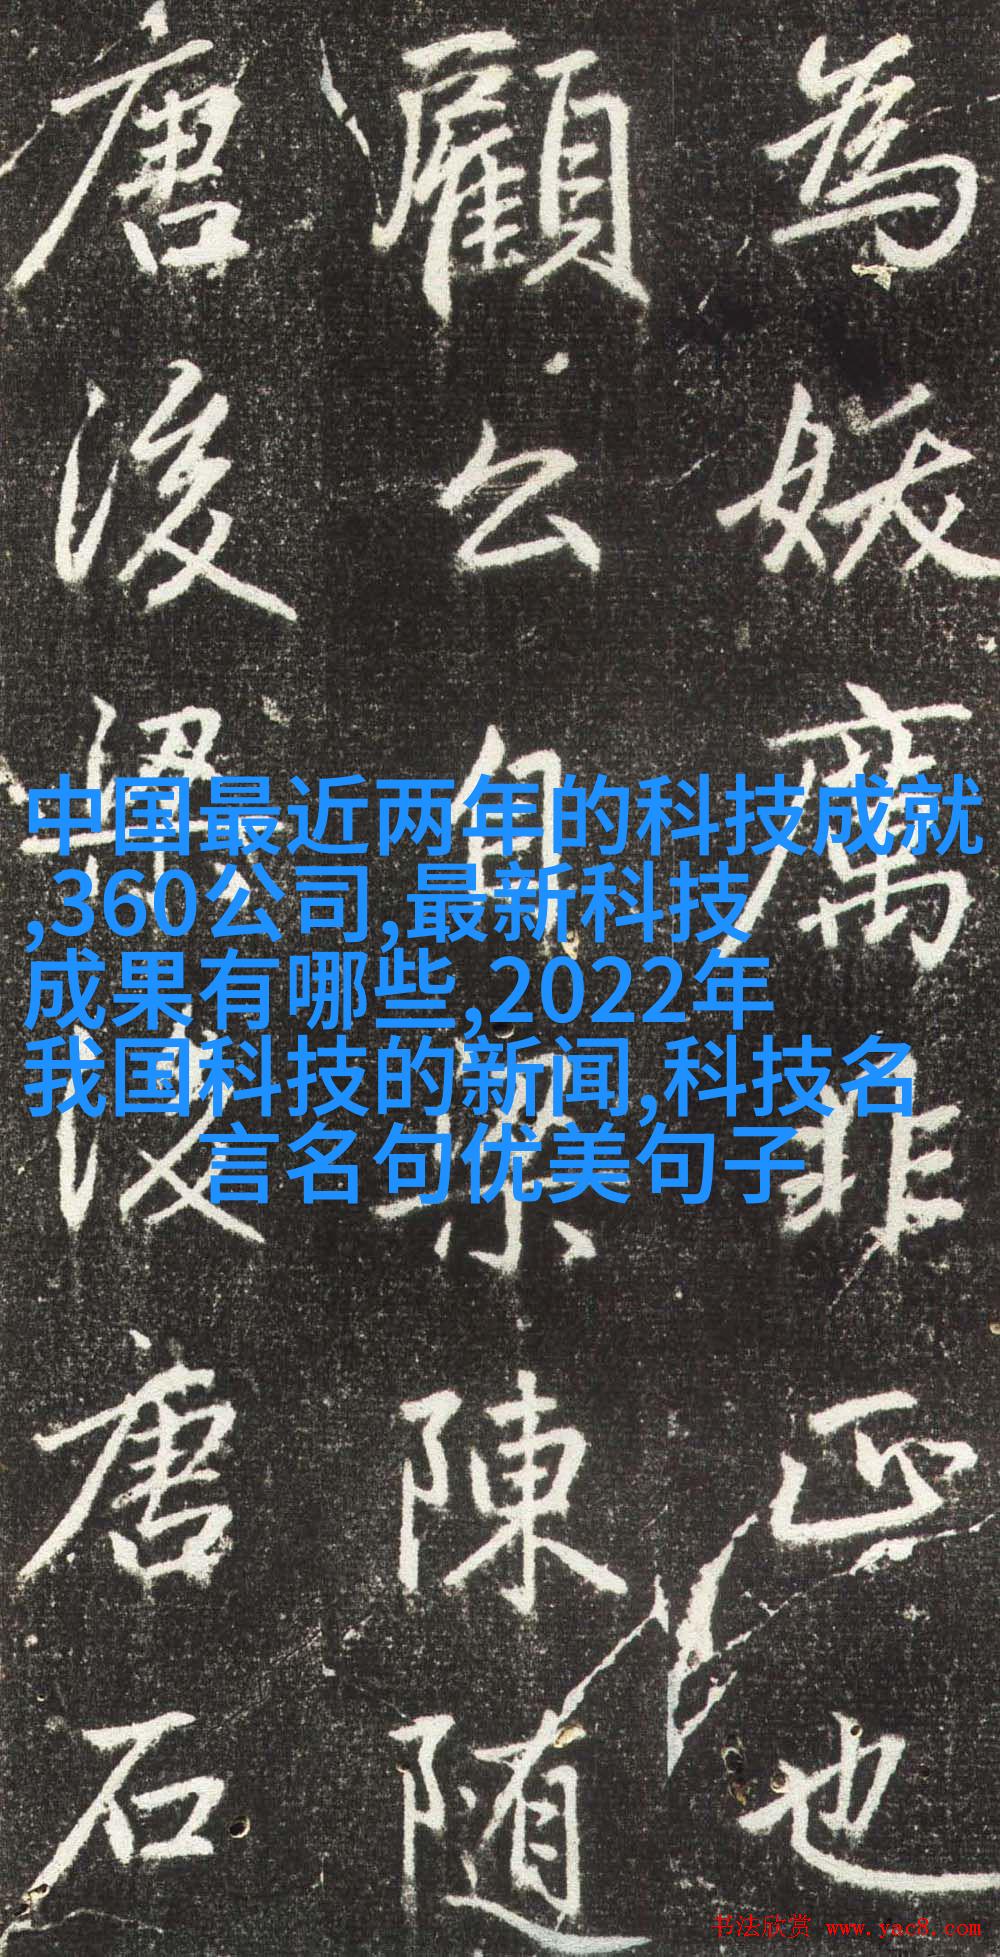 為妖厲非正也
顧公自梁陳随
唐後梁後唐石
中国最近两年的科技成就
,360公司,最新科技
成果有哪些,2022年
我国科技的新闻,科技名
言名句优美句子
书法欣赏 www.yac8.com